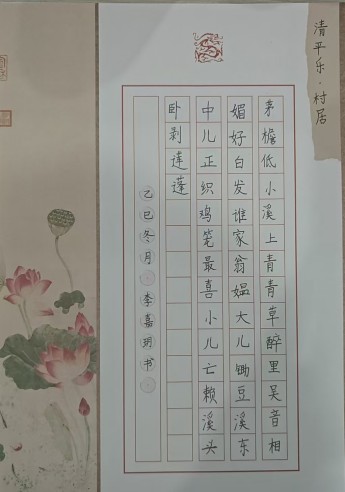 清平乐·村居
茅檐低小溪上青青草醉里吴音相
媚好白发谁家翁媪大儿锄豆溪东
中儿正织鸡笼最喜小儿亡赖溪头
卧剥莲蓬
乙巳冬月 李嘉玥书